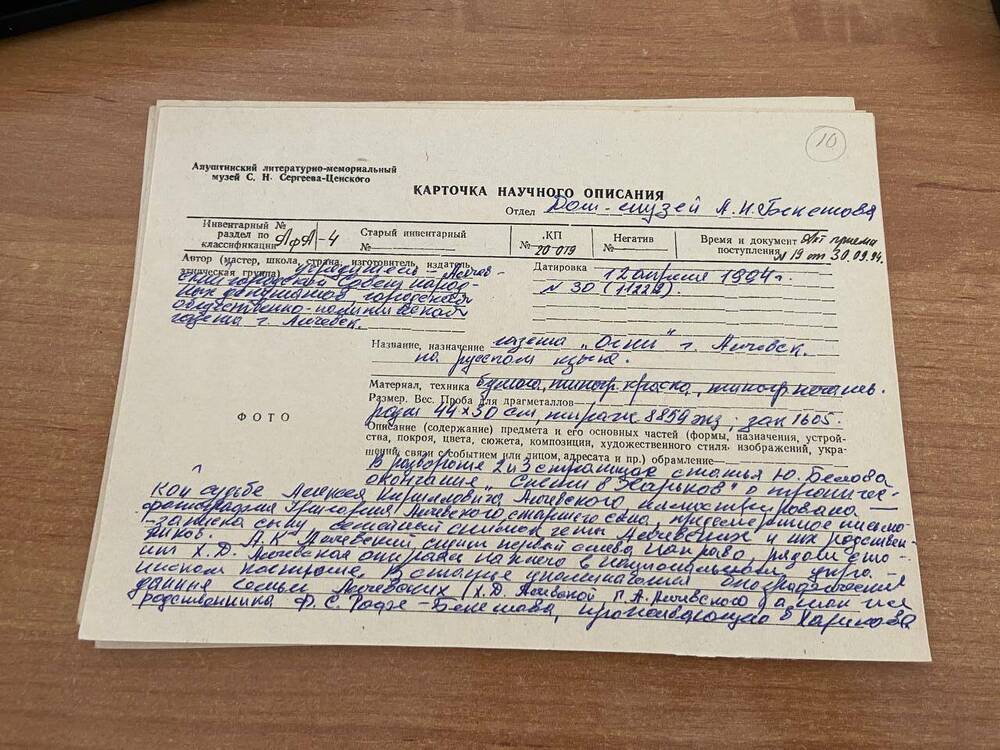 10
Алуштинский литературно-мемориальный
музей С. Н. Сергеева-Ценского
КАРТОЧКА НАУЧНОГО ОПИСАНИЯ
Отдел Дом-музей А.Н.Бекетова
Инвентарный №
раздел по
классификации АфА-4
Старый инвентарный
№
КП
№ 20 019
Негатив
№
Время и документ Акт приема
поступления № 19 от 30.09.94.
Автор (мастер, школа, страна, изготовитель, издатель,
этническая группа) учредитель – Алчев-
ский городской Совет народ-
ных депутатов, городская
общественно-политическая
газета г. Алчевск.
Датировка 12 апреля 1994 г.
N 30 (11229).
Название, назначение газета „Огни" г. Алчевск.
на русском языке.
Материал, техника бумага, типогр. краска, типогр. печать.
Размер. Вес. Проба для драгметаллов
разм 44×30 см, тираж 8859 экз; зак 1605.
ФОТО
Описание (содержание) предмета и его основных частей (формы, назначения, устрой-
ства, покроя, цвета, сюжета, композиции, художественного стиля, изображений, укра-
шений, связи с событием или лицом, адресата и пр.) обрамление
В развороте 2 и 3 страниц статья Ю. Белова
окончание в Харьков" о трагичес-
кой судьбе Алексея Кирилловича Алчевского
фотография Григория Алчевского старшего сына, предсмертное письмо-
-записка сыну, семейный снимок четы Алчевских и их родствен-
ников. А.К. Алчевский сидит первый слева направо, рядом с ним
Х.Д. Алчевская в национальном укра-
инском костюме. В статье упоминаются биографические
данные семьи Алчевских (Х.Д. Алчевской Г.А. Алчевского а также
родственника Ф. С. Бекетова, проживающую в Харькове